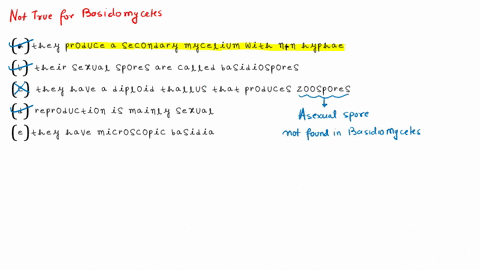 Not True for Basidomycetes
(a) they produce a secondary mycelium with n+n hyphae
(b) their sexual spores are called basidiospores
(c) they have a diploid thallus that produces zoospores
(d) reproduction is mainly sexual
Asexual spore
(e) they have microscopic basidia
not found in Basidiomycetes